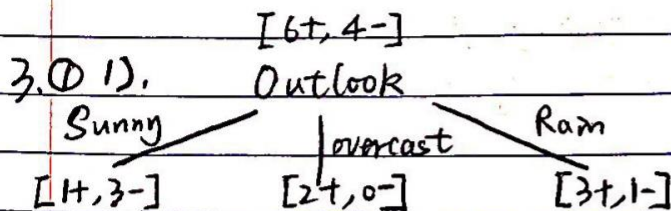 [6+, 4-]
3. ① 1). Outlook
Sunny overcast Rain
[1+, 3-] [2+, 0-] [3+, 1-]